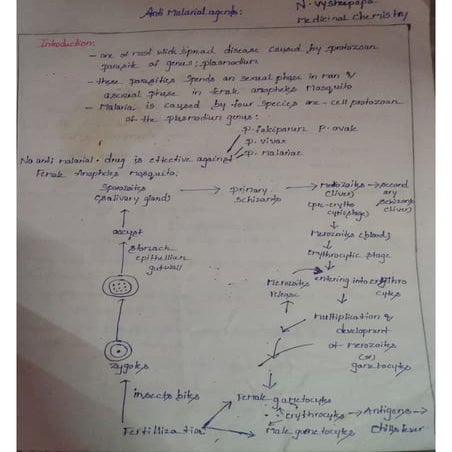 Anti Malarial agents:
N. Vyshnpapa
Medicinal chemistry
Introduction:
- one of most wide spread disease caused by protozoan
parasite of genus; plasmodium
- these parasities spends an sexual phase in man &
asexual phase in female anopheles Mosquito
- Malaria is caused by four species are - cell protozoan
of the plasmodium genus:
p. falciparum p. ovale
p. vivax
p. malariae
No anti malarial drug is effective against
Female Anopheles Mosquito;
Sporozoites
(salivary gland)
primary
schizants
Merozoites
(liver)
(pre-erythro
cytic stage)
second
ary
schizants
(liver)
Merozoites (blood)
erythrocytic stage
oocyst
stomach
epithellian
gutwall
Merozoites
release
entering into erythro
cytes
Multiplication &
development
of Merozoites
(or)
gametocytes
zygotes
insects bites
Fertillization
Female gametocytes
erythrocytes → Antigens →
Male gametocytes
chills fever